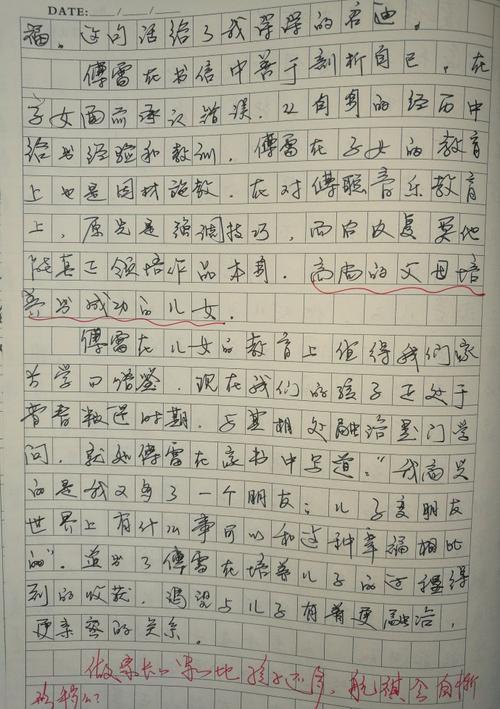 DATE: / /
福。这句话给了我深深的启迪。
傅雷在书信中善于剖析自己,在
子女面前承认错误,以自身的经历中
给出经验和教训。傅雷在子女的教育
上也是因材施教。在对傅聪音乐教育
上,原先是强调技巧,而后反复要他
能真正领悟作品本身。高尚的父母培
养出成功的儿女。
傅雷在儿女的教育上值得我们家
长学习借鉴。现在我们的孩子正处于
青春叛逆时期,与其相处融洽是门学
问,就如傅雷在家书中写道:“我高兴
的是我又多了一个朋友;儿子变朋友
世界上有什么事可以和这种幸福相比
的”。道出了傅雷在培养儿子的过程得
到的收获。渴望与儿子有着更融洽,
更亲密的关系。
做家长 地 孩子